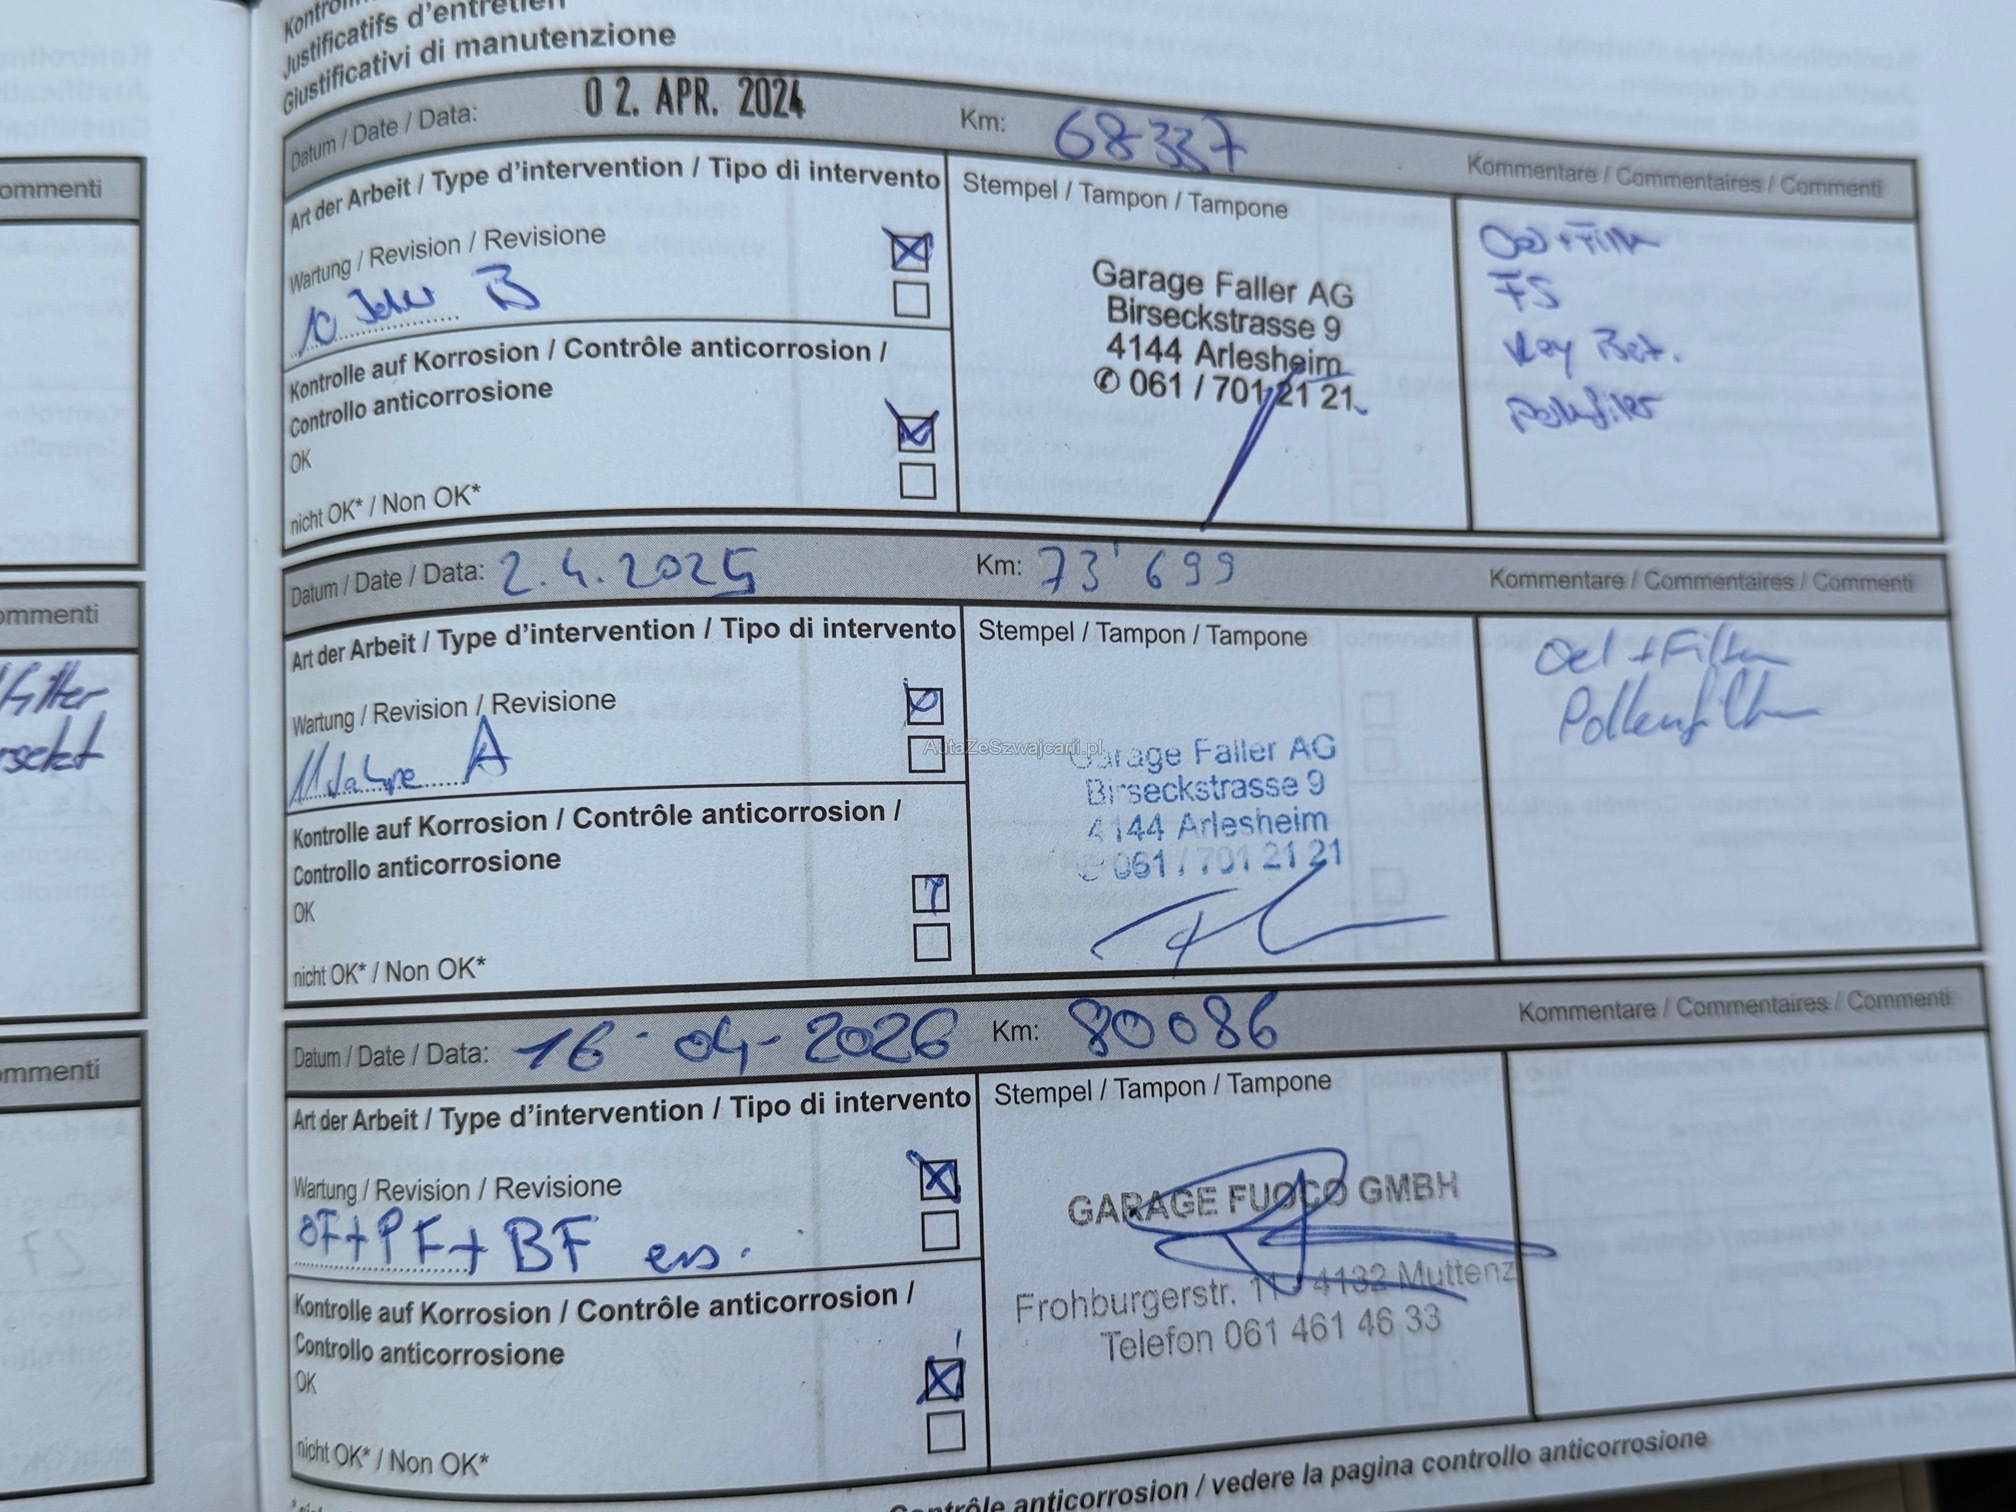 Justificatifs d'entretien
Giustificativi di manutenzione
Datum / Date / Data: 02. APR. 2024 Km: 68337 Kommentare / Commentaires / Commenti
Art der Arbeit / Type d'intervention / Tipo di intervento
Stempel / Tampon / Tampone
Wartung / Revision / Revisione
10 Jahr B
Kontrolle auf Korrosion / Contrôle anticorrosion /
Controllo anticorrosione
OK
nicht OK* / Non OK*
Garage Faller AG
Birseckstrasse 9
4144 Arlesheim
✆ 061 / 701 21 21
FS
Key Bat.
Datum / Date / Data: 2.4.2025 Km: 73'699 Kommentare / Commentaires / Commenti
Art der Arbeit / Type d'intervention / Tipo di intervento
Stempel / Tampon / Tampone
Wartung / Revision / Revisione
11 Jahre A
Kontrolle auf Korrosion / Contrôle anticorrosion /
Controllo anticorrosione
OK
nicht OK* / Non OK*
AutaZeSzwajcarii.pl
Garage Faller AG
Birseckstrasse 9
4144 Arlesheim
✆ 061 / 701 21 21
Oel + Filter
Pollenfilter
Datum / Date / Data: 16-04-2026 Km: 80086 Kommentare / Commentaires / Commenti
Art der Arbeit / Type d'intervention / Tipo di intervento
Stempel / Tampon / Tampone
Wartung / Revision / Revisione
ÖF+PF+BF ers.
Kontrolle auf Korrosion / Contrôle anticorrosion /
Controllo anticorrosione
OK
nicht OK* / Non OK*
GARAGE FUOCO GMBH
Frohburgerstr. 11 / 4132 Muttenz
Telefon 061 461 46 33
Contrôle anticorrosion / vedere la pagina controllo anticorrosione